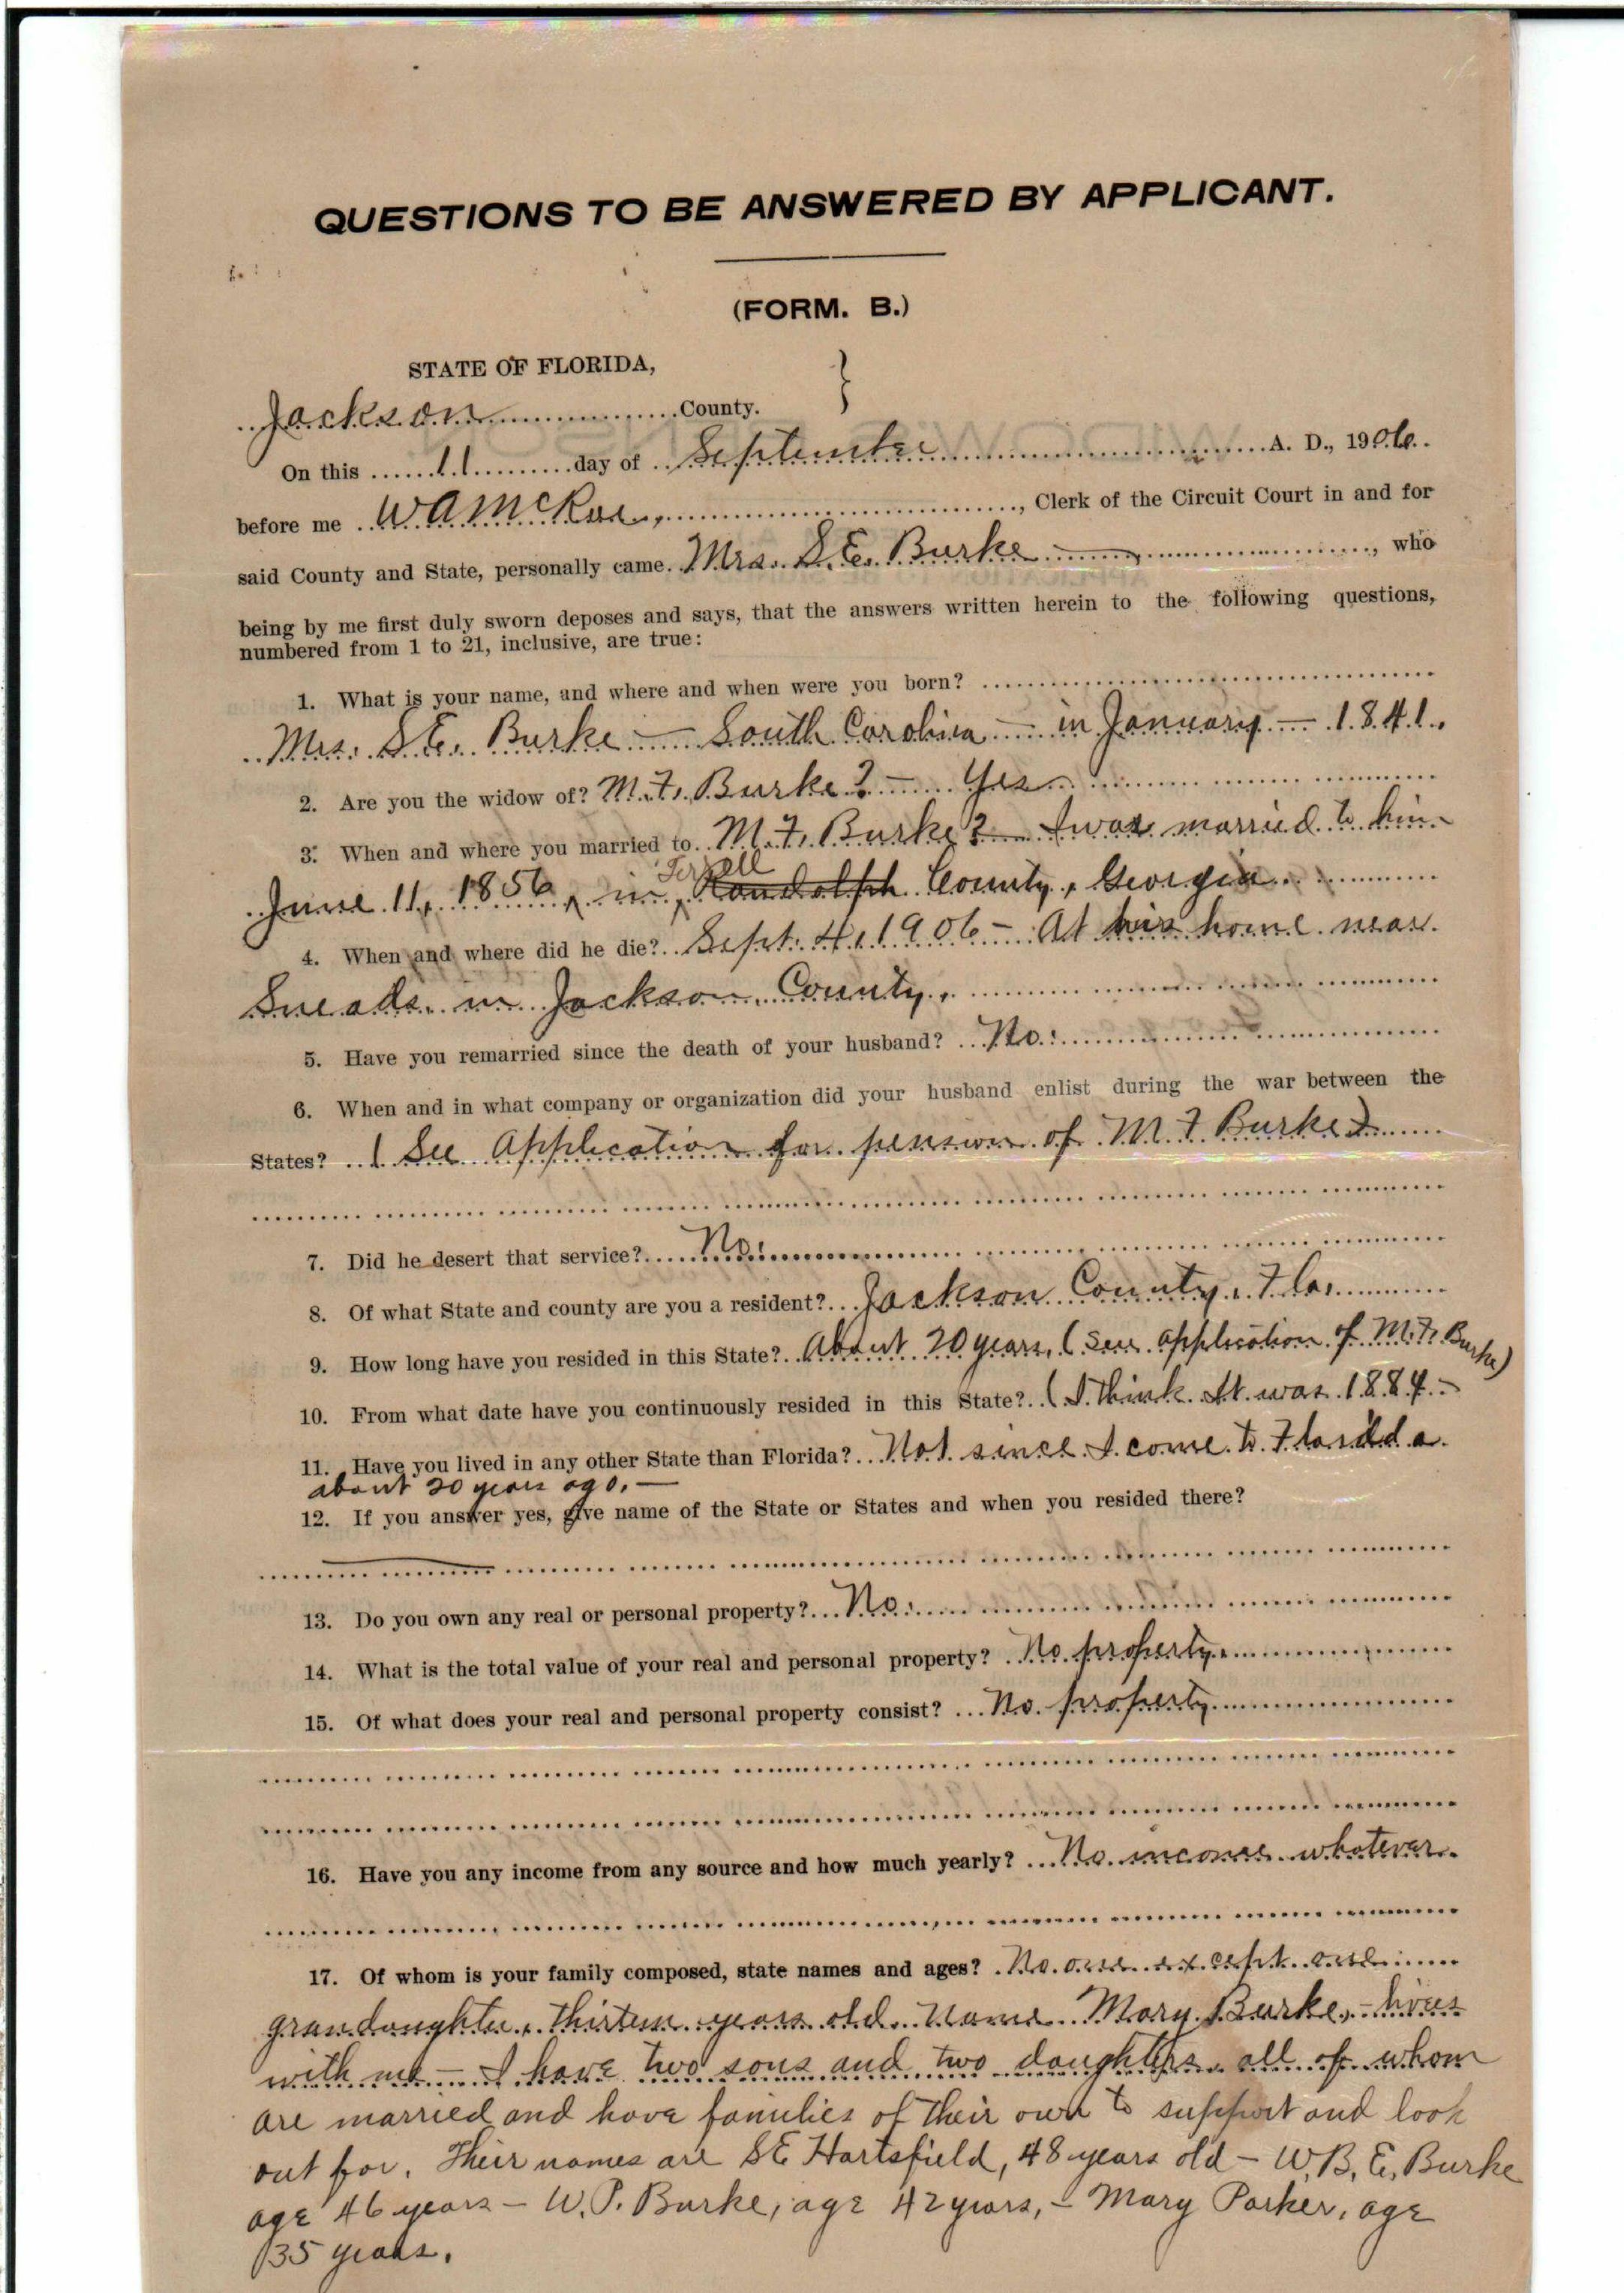 QUESTIONS TO BE ANSWERED BY APPLICANT.
(FORM. B.)
STATE OF FLORIDA,
Jackson County.
On this 11 day of September A. D., 1906.
before me W A McRae, Clerk of the Circuit Court in and for
said County and State, personally came Mrs. S.E. Burke, who
being by me first duly sworn deposes and says, that the answers written herein to the following questions,
numbered from 1 to 21, inclusive, are true:
1. What is your name, and where and when were you born?
Mrs. S.E. Burke — South Carolina — in January — 1841.
2. Are you the widow of? M.F. Burke? — Yes
3. When and where you married to M.F. Burke? I was married to him
Terrell
June 11, 1856, in Randolph County, Georgia
4. When and where did he die? Sept. 4, 1906 — At his home near
Sneads in Jackson County,
5. Have you remarried since the death of your husband? No.
6. When and in what company or organization did your husband enlist during the war between the
States? (See Application for pension of M F Burke)
7. Did he desert that service? No.
8. Of what State and county are you a resident? Jackson County, Fla.
9. How long have you resided in this State? About 20 years, (See application of M.F. Burke)
10. From what date have you continuously resided in this State? (I think It was 1884 —
11. Have you lived in any other State than Florida? Not since I come to Florida
about 20 years ago. —
12. If you answer yes, give name of the State or States and when you resided there?
13. Do you own any real or personal property? No.
14. What is the total value of your real and personal property? No property.
15. Of what does your real and personal property consist? No property
16. Have you any income from any source and how much yearly? No income whatever.
17. Of whom is your family composed, state names and ages? No one except one
grandaughter, thirteen years old. Name Mary Burke, — lives
with me — I have two sons and two daughters, all of whom
are married and have families of their own to support and look
out for. Their names are S E Hartsfield, 48 years old — W.B.E. Burke
age 46 years — W.P. Burke, age 42 years, — Mary Parker, age
35 years.